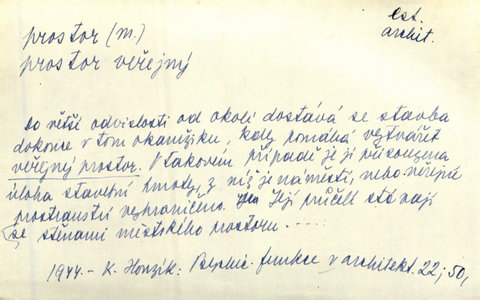 est.
archit.
prostor (m.)
prostor veřejný
Do větší odvislosti od okolí dostává se stavba
dokonce v tom okamžiku, kdy pomáhá vytvářet
veřejný prostor. V takovém případě je jí přisouzena
úloha stavební hmoty, z níž je náměstí, nebo veřejné
prostranství vyhraničeno. Její průčelí stávají
se stěnami městského prostoru.....
1944. - K. Honzík: Psychic. funkce v architekt. 22; 50,